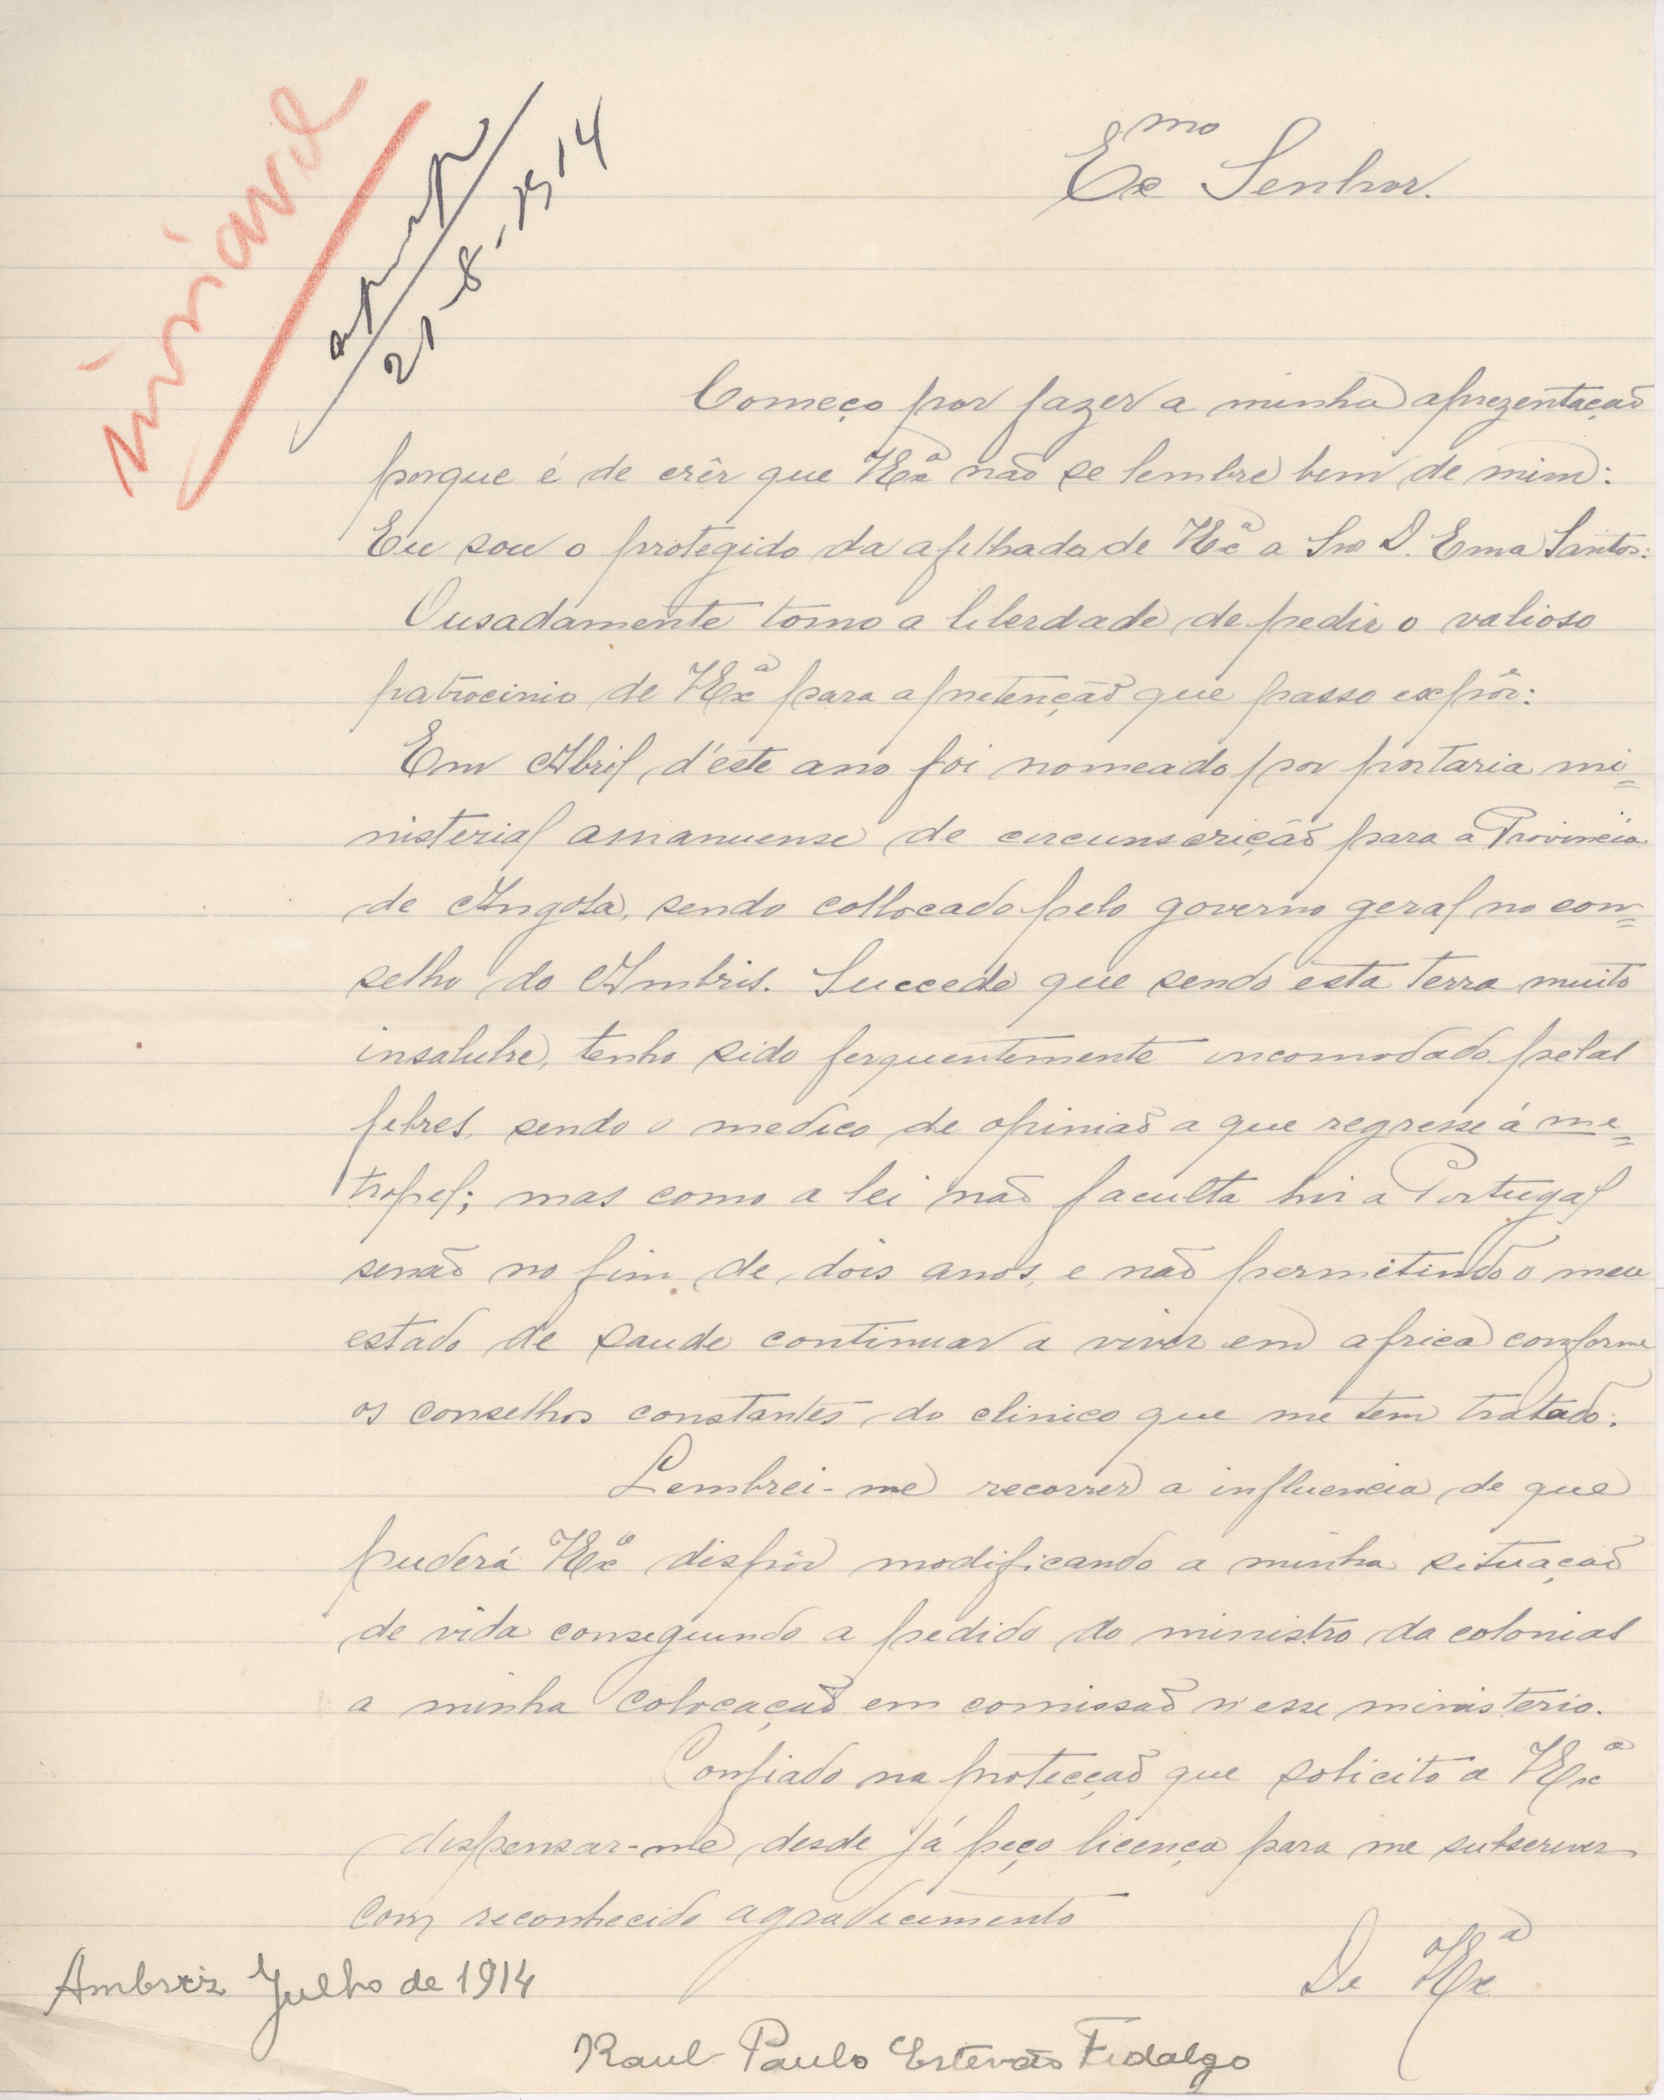 21-8-1914
Exmo Senhor.
Começo por fazer a minha aprezentação
porque é de crêr que VExª não se lembre bem de mim:
Eu sou o protegido da afilhada de VExª a Sra D. Ema Santos:
Ousadamente tomo a liberdade de pedir o valioso
patrocinio de VExª para a pretenção que passo expôr:
Em Abril d'este ano foi nomeado por portaria mi=
nisterial amanuense de circunscrição para a Provincia
de Angola, sendo collocado pelo governo geral no con=
selho do Ambris. Succede que sendo esta terra muito
insalubre, tenho sido ferquentemente incomodado pelas
febres, sendo o medico de opinião a que regresse á me=
tropol; mas como a lei não faculta hir a Portugal
senão no fim de dois anos, e não permitindo o meu
estado de saude continuar a viver em africa conforme
os conselhos constantes do clinico que me tem tratado.
Lembrei-me recorrer a influencia de que
puderá VExª dispôr modificando a minha situação
de vida conseguindo a pedido do ministro da colonias
a minha colocação em comissão n'esse ministerio.
Confiado na protecção que solicito a VExª
dispensar-me desde já peço licença para me subscrever
com reconhecido agradecimento
De VExª
Ambriz Julho de 1914
Raul Paulo Estevão Fidalgo